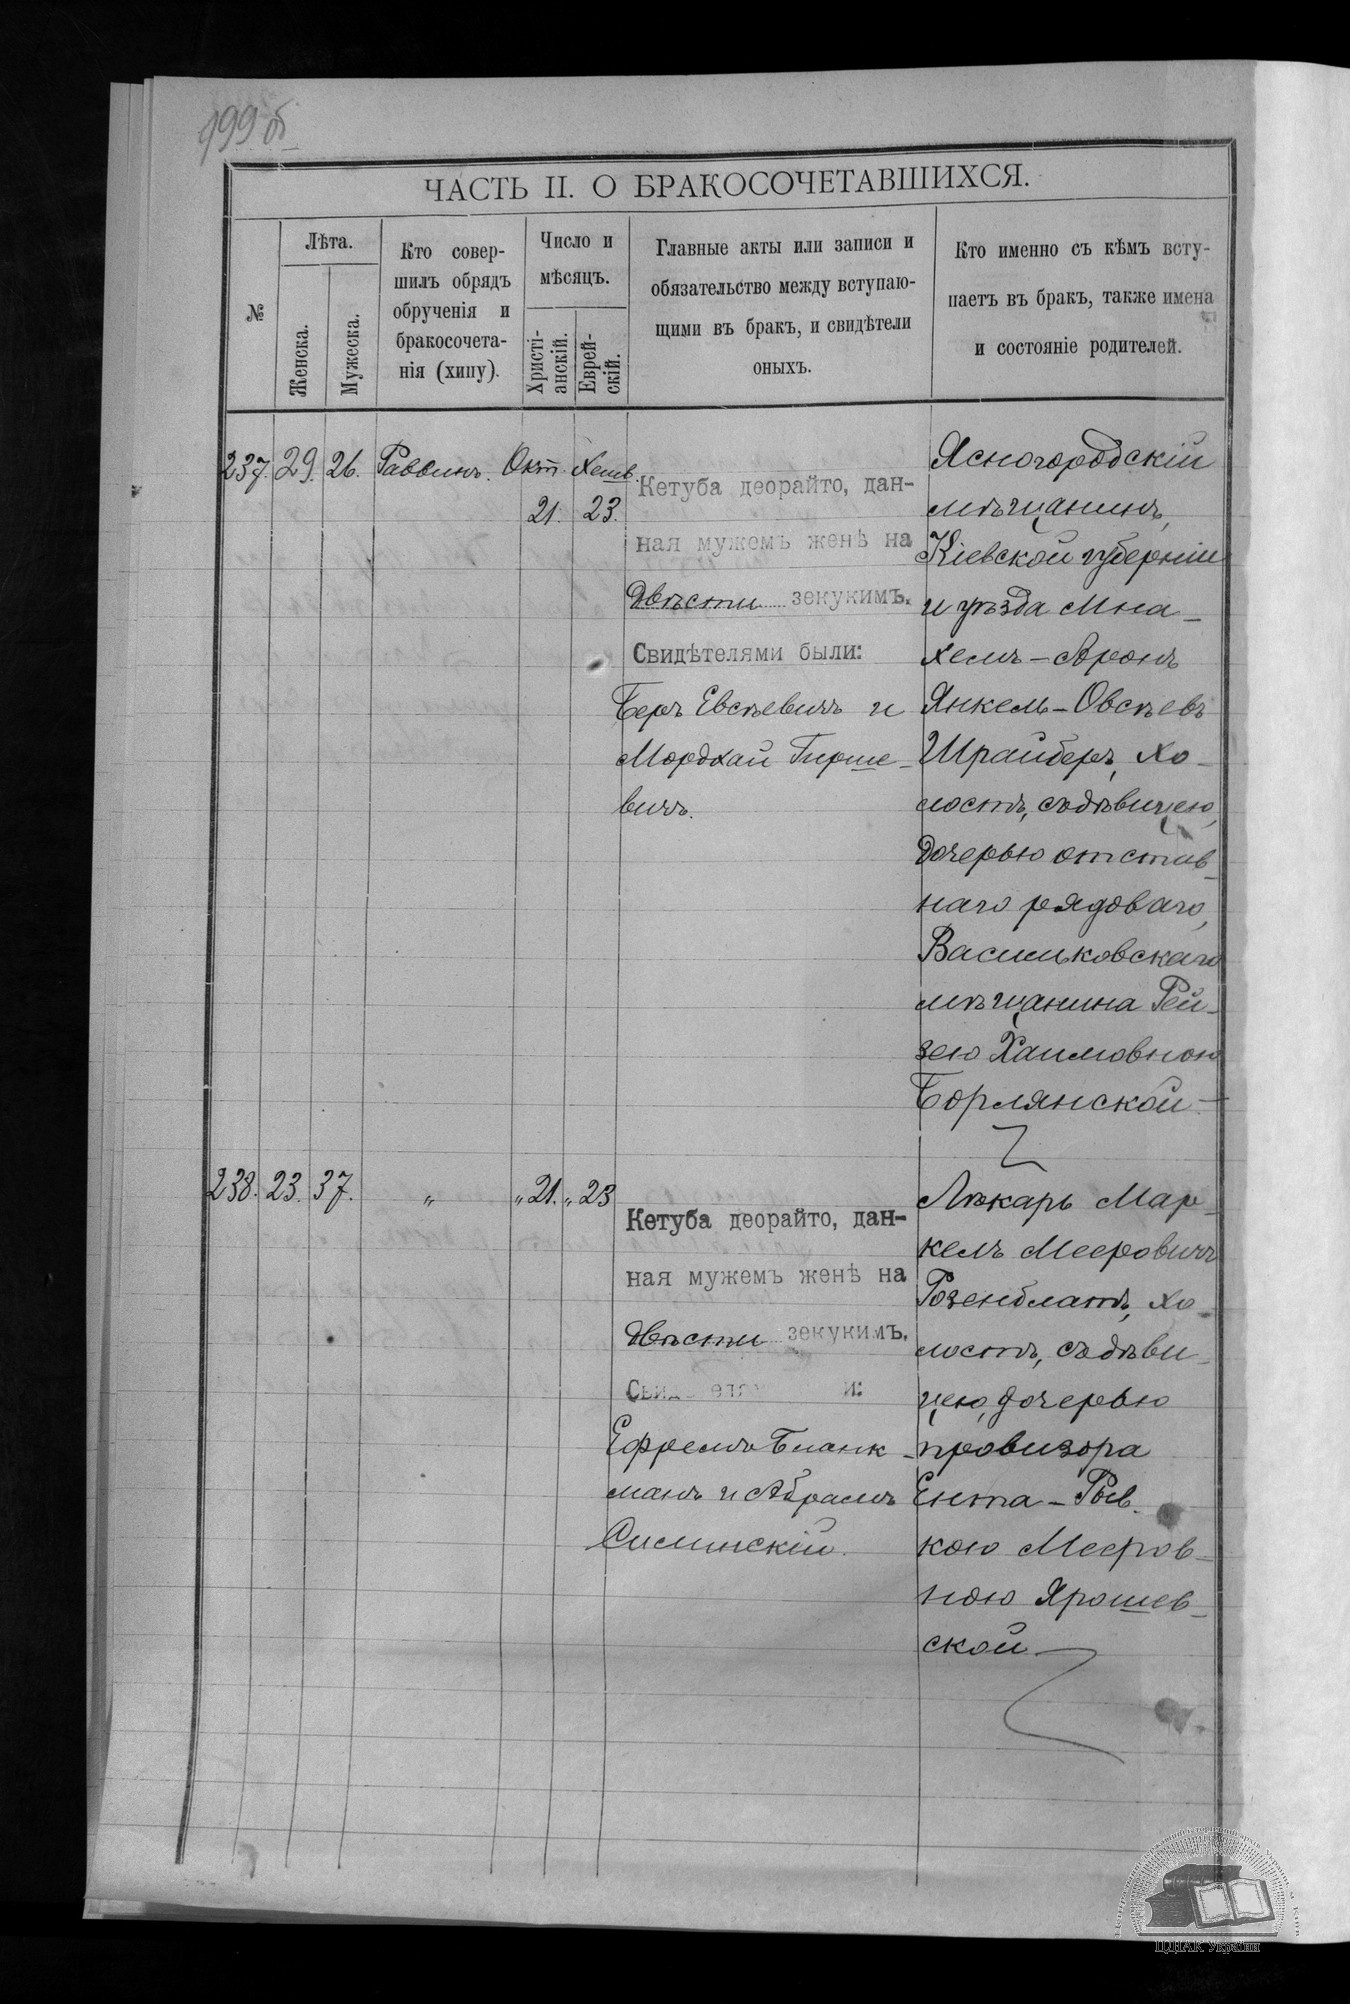 199 об
ЧАСТЬ II. О БРАКОСОЧЕТАВШИХСЯ.
№
Лѣта.
Женска.
Мужеска.
Кто совер-
шилъ обрядъ
обрученія и
бракосочета-
нія (хипу).
Число и
мѣсяцъ.
Христі-
анскій.
Еврей-
скій.
Главные акты или записи и
обязательство между вступаю-
щими въ бракъ, и свидѣтели
оныхъ.
Кто именно съ кѣмъ всту-
паетъ въ бракъ, также имена
и состояніе родителей.
237. 29. 26. Раввинъ. Окт. 21. Хешв. 23.
Кетуба деорайто, дан-
ная мужемъ женѣ на
двѣсти зекукимъ.
Свидѣтелями были:
Беръ Евсѣевичъ и
Мордхай Гирше-
вичъ.
Ясногородскій
мѣщанинъ,
Кіевской губерніи
и уѣзда Мна-
хемъ-Аронъ
Янкель-Овсѣевъ
Шрайберъ, хо-
лостъ, съ дѣвицею,
дочерью отстав-
наго рядоваго,
Васильковскаго
мѣщанина Рей-
зею Хаимовною
Борлянской
238. 23. 37. „ „ 21. „ 23
Кетуба деорайто, дан-
ная мужемъ женѣ на
двѣсти зекукимъ.
Ефремъ Бланк-
манъ и Абрамъ
Силинскій.
Лѣкарь Мар-
келъ Мееровичъ
Розенблатъ, хо-
лостъ, съ дѣви-
цею, дочерью
провизора
Ента-Рив-
кою Мееров-
ною Ярошев-
ской
ЦДІАК України